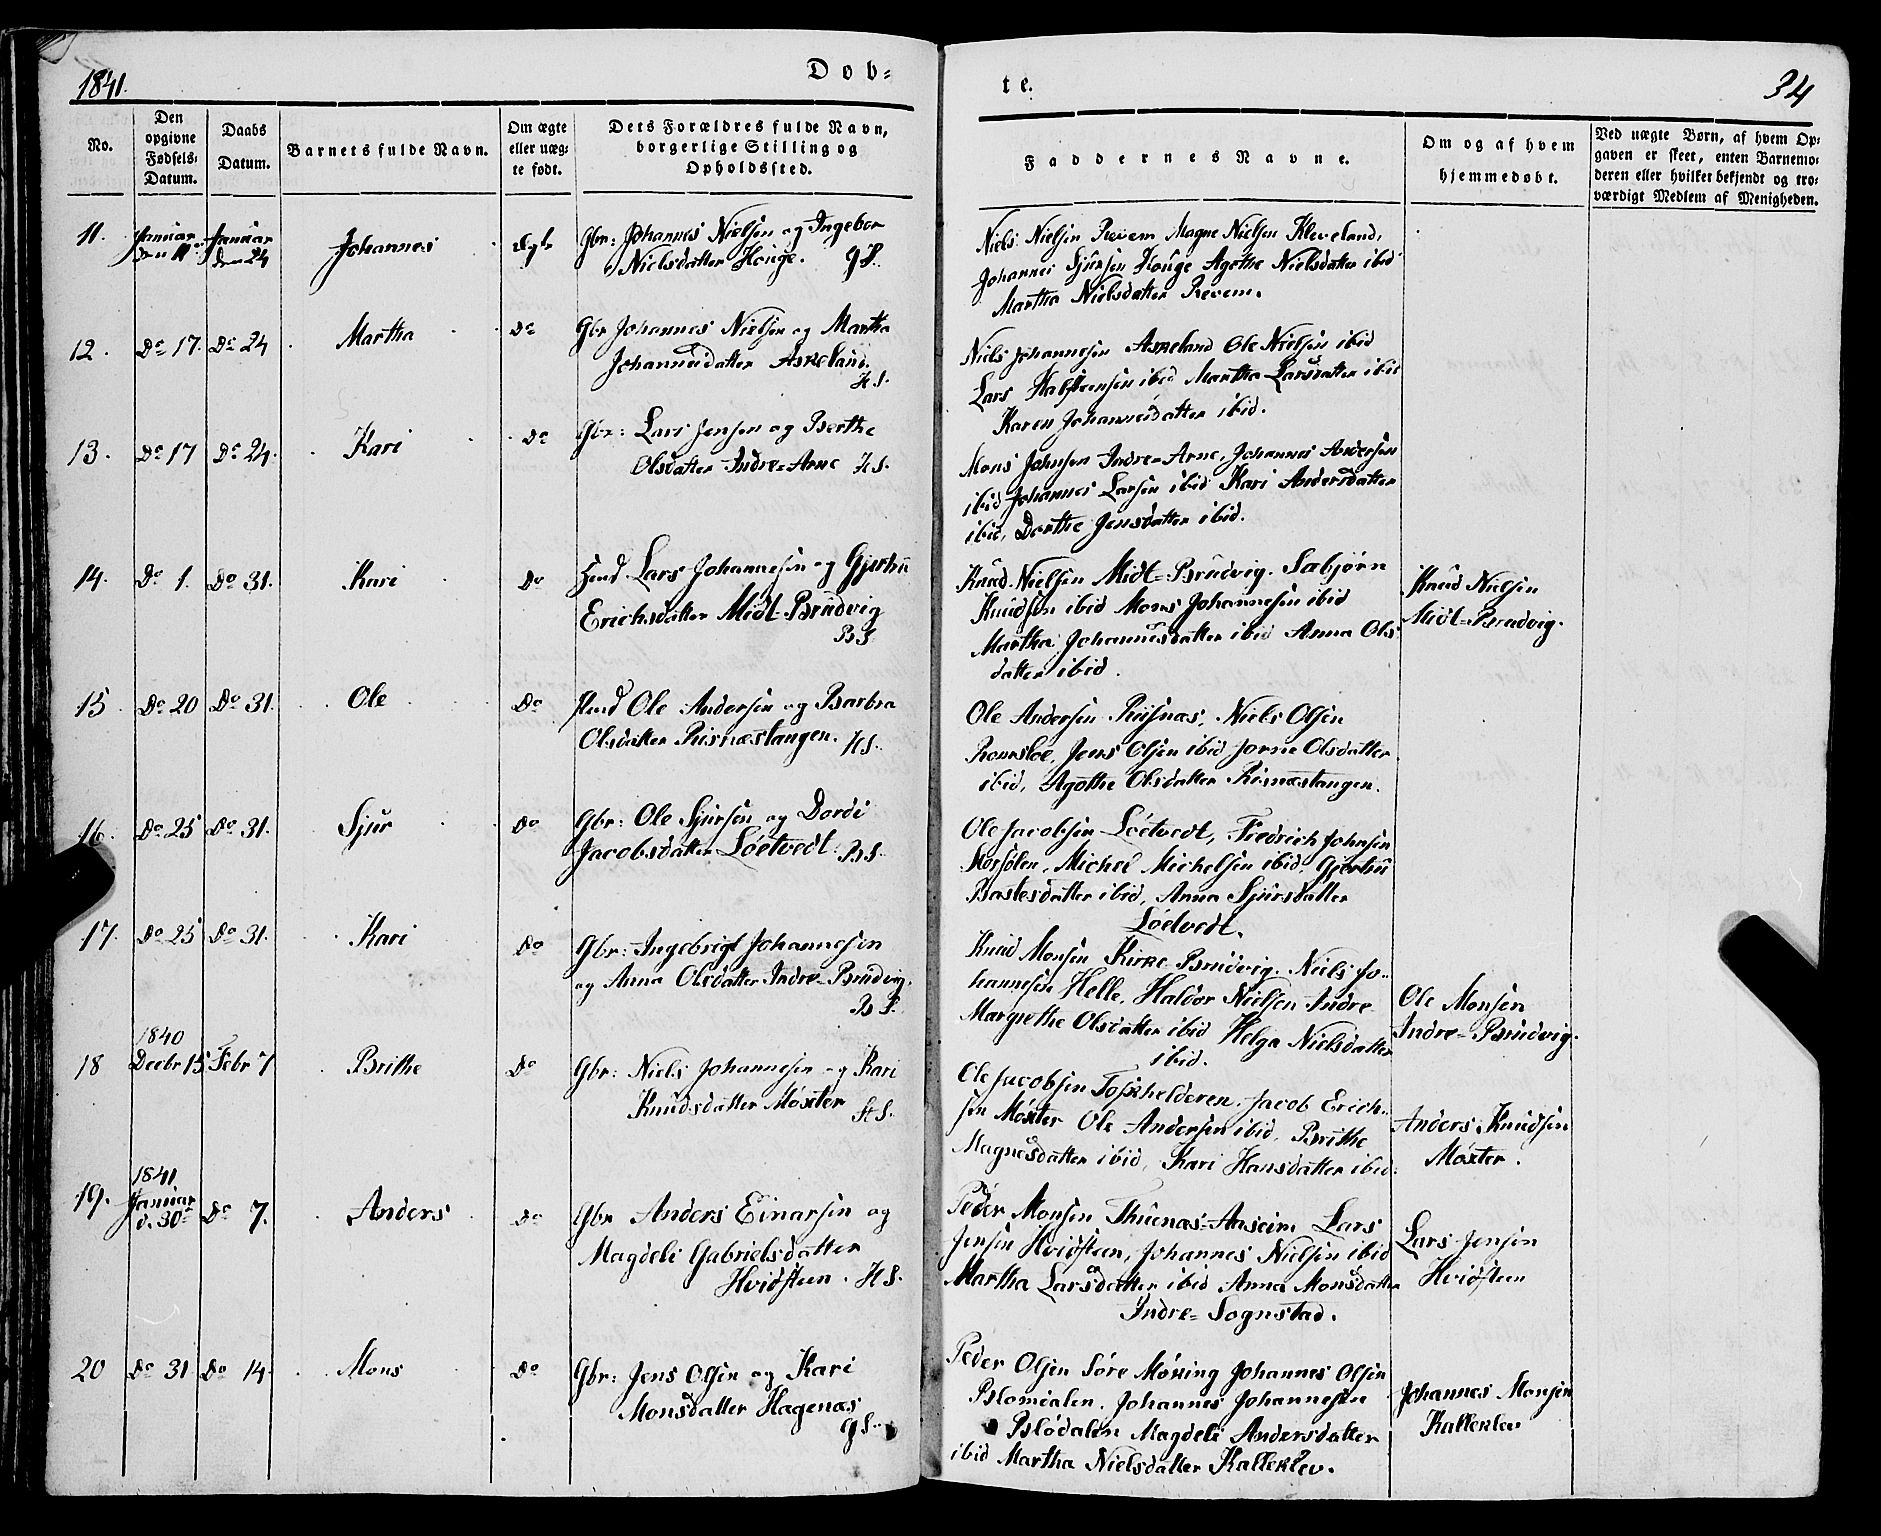 1841.
Døb-
te.
34
No.
Den
opgivne
Fødsels-
Datum.
Daabs
Datum.
Barnets fulde Navn.
Om ægte
eller uæg-
te født.
Dets Forældres fulde Navn,
borgerlige Stilling og
Opholdssted.
Faddernes Navne.
Om og af hvem
hjemmedøbt.
Ved uægte Børn, af hvem Op-
gaven er skeet, enten Barnemo-
deren eller hvilket bekjendt og tro-
værdigt Medlem af Menigheden.
11.
Januar
den 11
Januar
den 24
Johannes
Gbr: Johannes Nielsen og Ingebor
Nielsdatter Houge. GS.
Niels Nielsen Revem Magne Nielsen Kleveland,
Johannes Sjursen Houge Agothe Nielsdatter ibid
Martha Nielsdatter Revem.
12.
Do 17.
Do 24
Martha
Do
Gbr Johannes Nielsen og Martha
Johannesdatter Askeland.
HS.
Niels Johannesen Askeland Ole Nielsen ibid
Lars ibid Martha Larsdatter ibid
Karen Johannesdatter ibid.
13.
Do 17
Do 24.
Kari
Do
Gbr: Lars Jensen og Berthe
Olsdatter Indre-Arne HS.
Mons Johnsen Indre-Arne, Johannes Andersen
ibid Johannes Larsen ibid Kari Andersdatter
ibid, Dorthe Jensdatter ibid.
14.
Do 1.
Do 31.
Kari
Do
Lars Johannesen og Gjertru
Erichsdatter Midt-Brudvig
BS.
Knud Nielsen Midt-Brudvig. Sæbjørn
Knudsen ibid Mons Johannesen ibid
Martha Johannesdatter ibid Anna Ols
datter ibid.
Knud Nielsen
Midt-Brudvig.
15.
Do 20
Do 31.
Ole
Do
Ole Andersen og Barbra
Olsdatter Risnæstangen. HS.
Ole Andersen Riisnæs, Niels Olsen
Romsloe, Jens Olsen ibid Jorne Olsdatter
ibid, Agothe Olsdatter Risnæstangen.
16.
Do 25
Do 31.
Sjur
Do
Gbr: Ole Sjursen og Dordi
Jacobsdatter Löetvedt. BS.
Ole Jacobsen Löetvedt, Fredrich Johnsen
Michel Michelsen ibid, Gjertru
Bastesdatter ibid, Anna Sjursdatter
Löetvedt.
17.
Do 25
Do 31.
Kari
Do
Gbr: Ingebrigt Johannesen
og Anna Olsdatter Indre-Brudvig.
BS.
Knud Monsen Kirke-Brudvig. Niels Jo-
hannesen Helle. Haldor Nielsen Indre
Margrethe Olsdatter ibid Helga Nielsdatter
ibid.
Ole Monsen
Indre-Brudvig.
18
1840
Decbr 15
Febr 7
Brithe
Do
Gbr: Niels Johannesen og Kari
Knudsdatter Möxter HS.
Ole Jacobsen Jacob Erich-
sen Möxter Ole Andersen ibid, Brithe
Magnesdatter ibid, Kari Hansdatter ibid.
Anders Knudsen
Möxter.
19.
1841
Januar
d. 30te
Do 7.
Anders
Do
Gbr Anders Einarsen og
Magdeli Gabrielsdatter
Hvidsteen. HS.
Peder Monsen Lars
Jensen Hvidsteen, Johannes Nielsen ibid
Martha Larsdatter ibid Anna Monsdatter
Indre-Sognstad.
Lars Jensen
Hvidsteen
20
Do 31
Do 14.
Mons
Do
Gbr: Jens Olsen og Kari
Monsdatter Hagenæs
GS.
Peder Olsen Söre Möking Johannes Olsen
Blomdalen. Johannes Johannesen
Blödalen Magdeli Andersdatter
ibid Martha Nielsdatter Kalleklev.
Johannes Monsen
Kalleklev